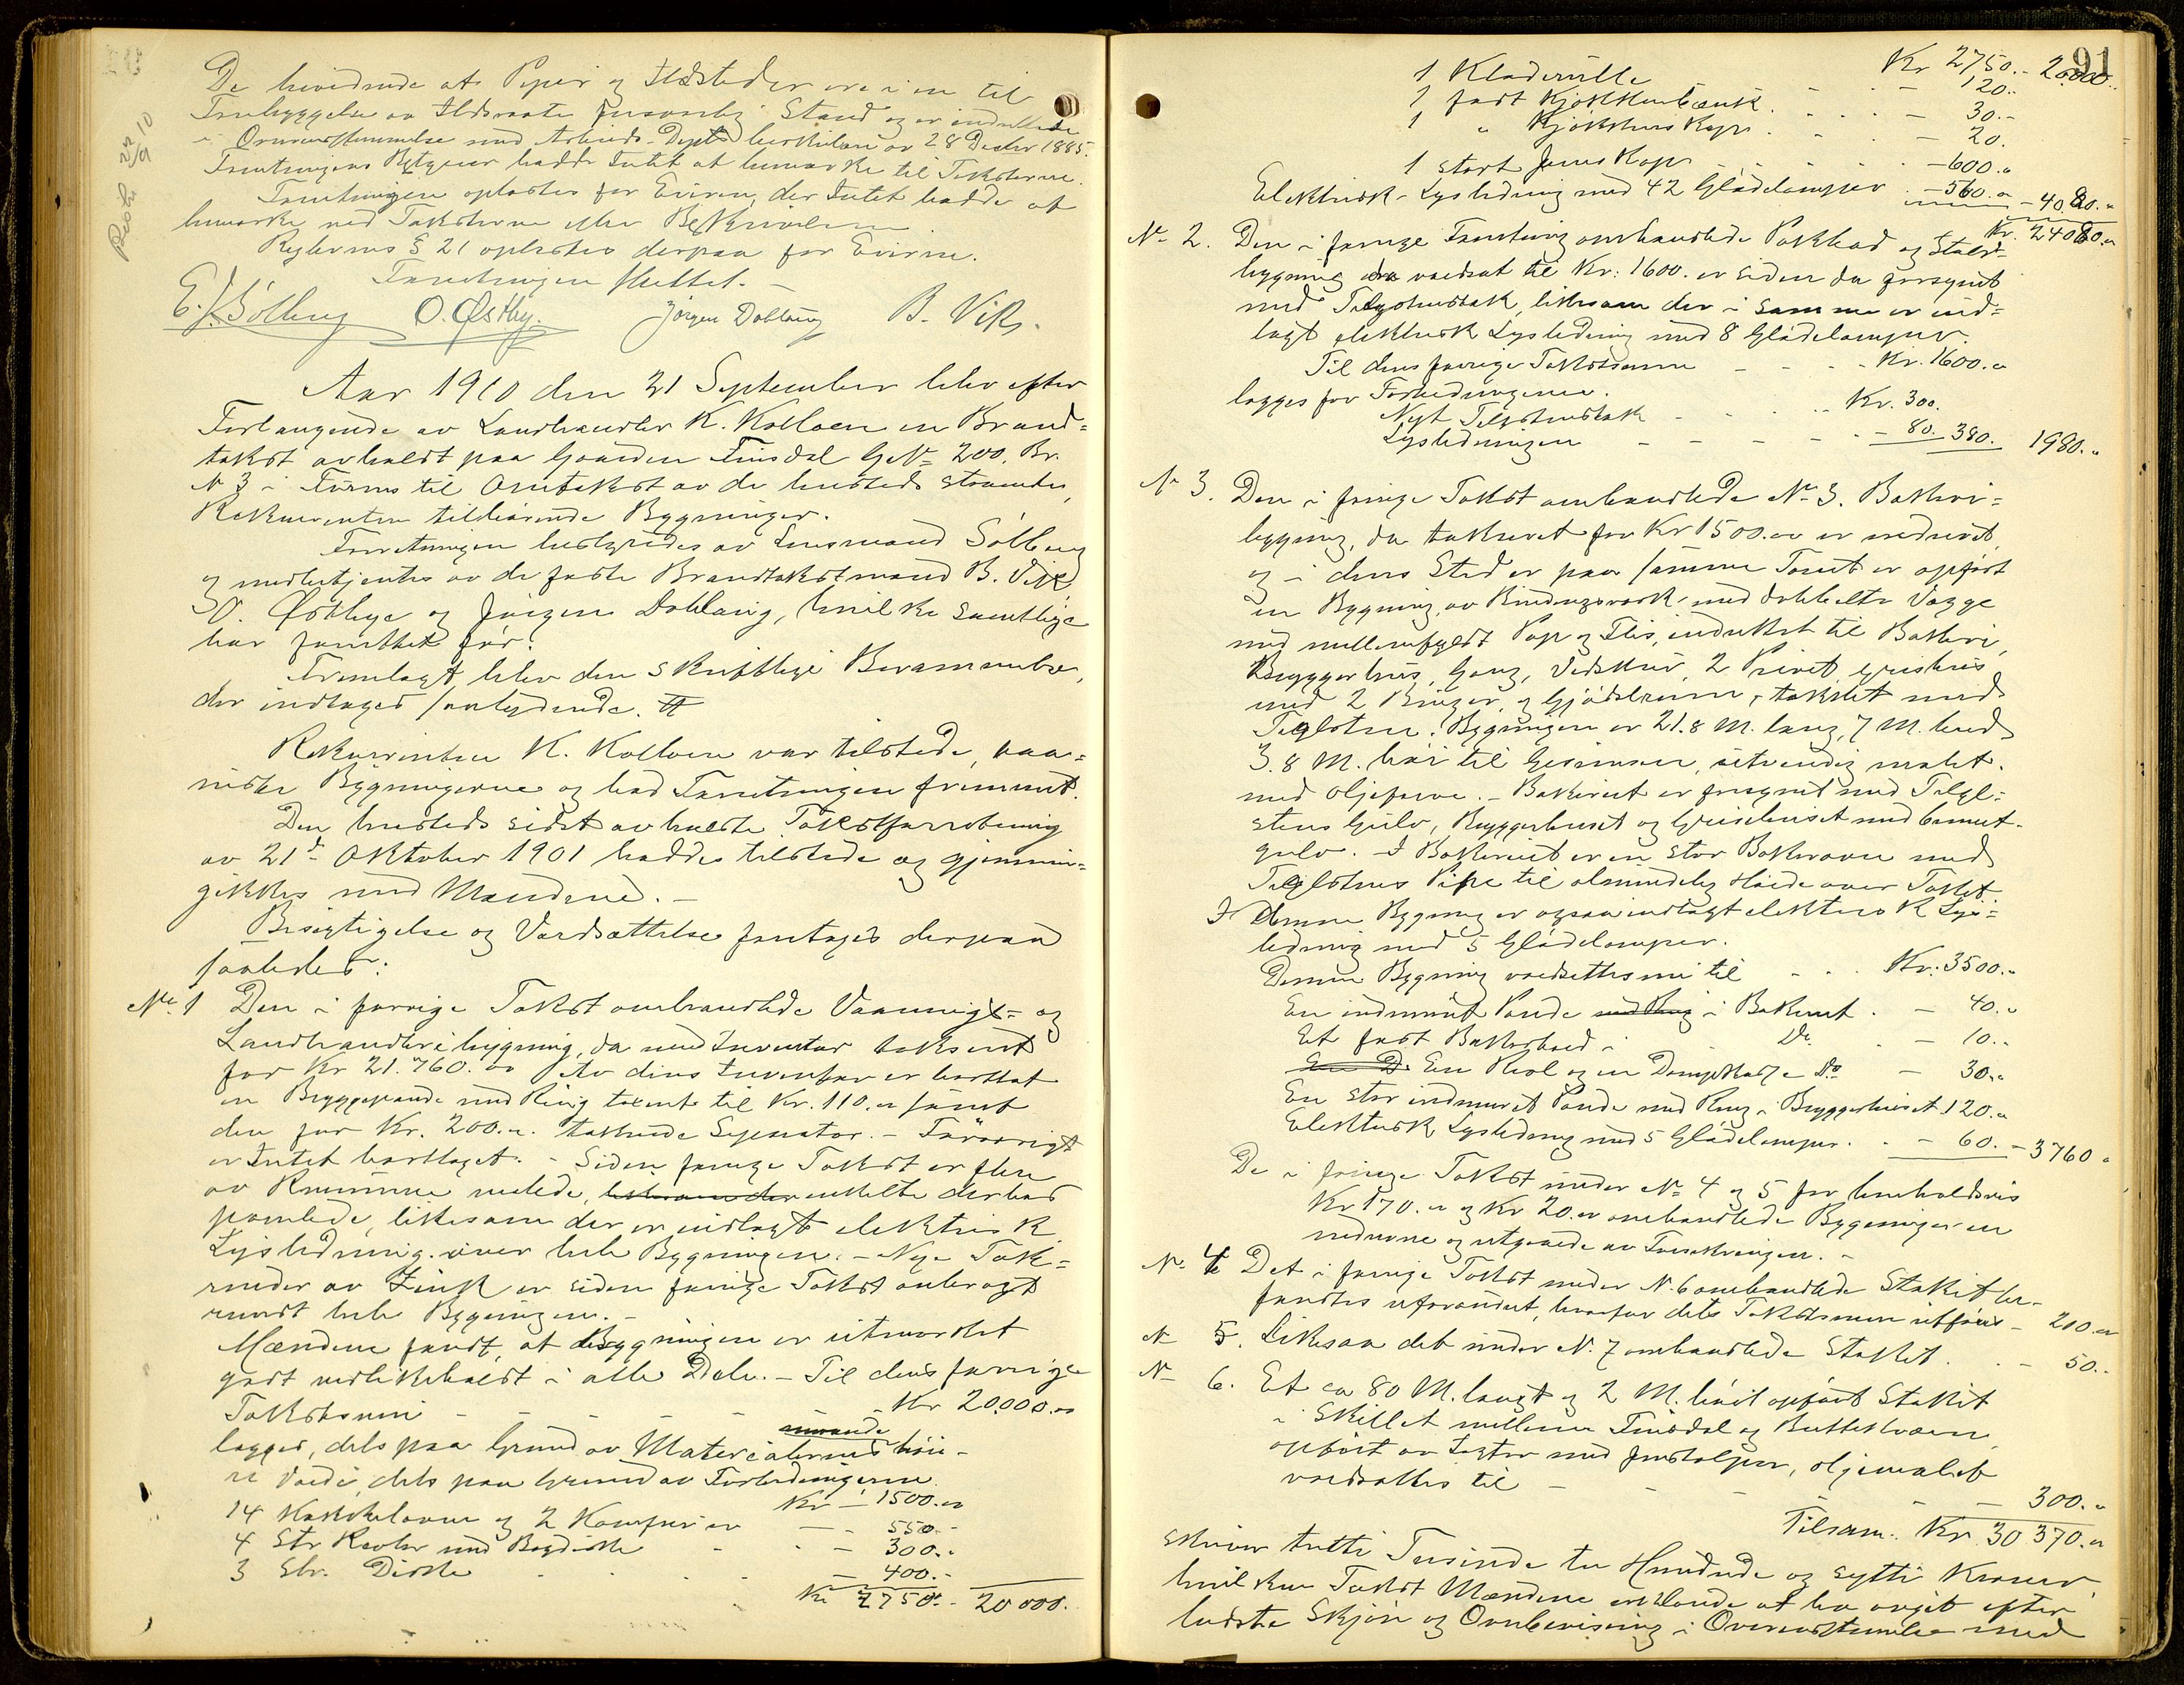 De bivednede at Piper og Ildsteder ere i en til
Forebyggelse av Ildsvaade forsvarlig Stand og er indrettede
i Overensstemmelse med Arbeids-Depts berkilære av 28 Decbr 1885.
Forretningens Rekvirent hadde Intet at bemærke til Taksterne.
Forretningen oplæstes for Eieren, der Intet hadde at
bemærke ved Taksterne eller Beskrivelsen
Reglernes § 21 oplæstes derpaa for Eieren.
Forretningen sluttet.
E. J. Solberg O. Østby. Jørgen Doblaug B. Vik.
Rekv 22/9 10
Aar 1910 den 21 September blev efter
Forlangende av Landhandler K. Kolloen en Brand=
takst avholdt paa Gaarden Finsdal GNo 200, Br.
N 3 i Furnes til Omtakst av de husteds staaende,
Rekvirenten tilhørende Bygninger.
Forretningen bestyredes av Lensmand Solberg
og medbetjentes av de faste Brandtakstmænd B. Vik,
O. Østbye og Jørgen Doblaug, hvilke samtlige
har forrettet før.
Fremlagt blev den skriftlige Berammelse,
der indtages saalydende. #
Rekvirenten K. Kolloen var tilstede, paa=
viste Bygningerne og bad Forretningen fremmet.
Den husteds sidst avholdte Takstforretning
av 21de Oktober 1901 haddes tilstede og gjennem=
gikkes med Mændene. -
Besigtigelse og Værdsættelse foretages derpaa
saaledes:
No. 1 Den i forrige Takst omhandlede Vaanings= og
Landhandleribygning, da med Inventar taksert
for Kr 21.760.00. Av dens Inventar er borttat
en Bryggepande med Ring taxert til Kr. 110.00 samt
den for Kr. 200.00. takserte Separator. - Forøvrigt
er Intet borttaget. - Siden forrige Takst er flere
av Rummene malede, likesom der enkelte derhos
panelede, likesom der er indlagt elektrisk
Lysledning over hele Bygningen. - Nye Tak=
render av Zink er siden forrige Takst anbragt
rundt hele Bygningen. -
Mændene fandt, at Bygningen er utmærket
godt vedlikeholdt i alle Dele. - Til dens forrige
Takstsum - - - - Kr 20.000.00
lægges, dels paa Grund av Materialernes høie-
re Værdi, dels paa Grund av Forbedringerne
Kr - 1500.00
14 Kakkelovne og 2 Komfurer - - 550.-
4 Str Reoler med Bogdiske - - - 300.-
3 Str. Diske - - - - 400.-
Kr 2750.- 20 000.
91
Kr 2750.- 20.000..
1 Klæderulle - - - 120.-
1 fast Kjøkkenbænk - - - 30.-
1 " Kjøkkenskap - - - 20.
1 stort Jernskap - - - - 600.00
Elektrisk Lysledning med 42 Glødelamper - 560.00 - 4080.00
Kr. 24080.00
No 2. Den i forrige Forretning omhandlede Pakbod og Stald=
bygning da værdsat til Kr: 1600. er siden da forsynet
med Teglstenstak, likesom der i samme er ind=
lagt elektrisk Lysledning med 8 Glødelamper.
Til dens forrige Takstsum - - - Kr. 1600.00
lægges for Forbedringerne.
Nyt Teglstenstak - - - - Kr. 300.
Lysledningen - - - - - 80. 380. 1980.00
No 3. Den i forrige Takst omhandlede No 3. Bakeri=
bygning, da takseret for Kr 1500.00 er nedrevet,
og i dens Sted er paa samme Tomt er opført
en Bygning av Bindingsværk med dobbelte Vægge
med mellemfyldt Pap og Flis, indrettet til Bakeri,
Bryggerhus, Gang, Vedskur, 2 Privet, Grisehus
med 2 Binger, og Gjødselrum, taklet med
Teglsten. Bygningen er 21.8 M. lang, 7 M. bred
3.8 M. høi til Gesimsen, utvendig malet
med Oljefarve. - Bakeriet er forsynet med Tegl=
stens Gulv, Bryggerhuset og Grisehuset med Cement-
gulv. - I Bakeriet er en stor Bakerovn med
Teglstens Pipe til almindelig Høide over Taket
I denne Bygning er ogsaa indlagt elektrisk Lys=
ledning med 5 Glødelamper.
Denne Bygning værdsættes nu til - - - Kr: 3500.-
En indmuret Pande med Ring i Bakeriet - - 40.00
Et fast Bakerbord i Do. - - 10.-
En D. En Reol og en Dampkasse Do - 30.00
En stor indmuret Pande med Ring i Bryggerhuset 120.00
Elektrisk Lysledning med 5 Glødelamper - - 60. - 3760.
De i forrige Takst under No 4 og 5 for henholdsvis
Kr 170.00 og Kr 20.00 omhandlede Bygninger er
nedrevne og utgaaede av Forsikringen. -
No. 4 Det i forrige Takst under N. 6 omhandlede Stakit be-
fandtes uforandret, hvorfor dets Takstsum utføres - 200.00
No 5. Likesaa det under N. 7 omhandlede Stakit. - 50..
No 6. Et ca 80 M. langt og 2 M. høit opført Stakit
i Skillet mellem Finsdal og Buttekværn,
opført av Lægter med Jernstolper, oljemalet
værdsættes til - - - - - - 300.00
Tilsam. Kr 30 370.00
skriver tretti Tusinde tre Hundrede og sytti Kroner,
hvilken Takst Mændene erklærede at ha avgit efter
bedste Skjøn og Overbevisning i Overensstemmelse med